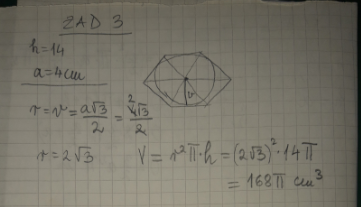 ZAD 3
h=14
a=4cm
r=v=a√3/2=4√3/2
2
r=2√3
V=r²π·h=(2√3)²·14π
=168π cm³